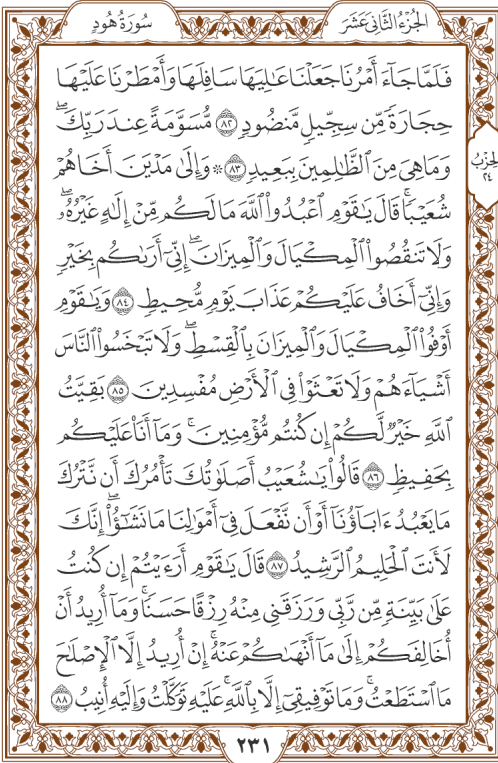 الجُزْءُ الثَّانِيَ عَشَرَ
سُورَةُ هُودٍ
فَلَمَّا جَآءَ أَمْرُنَا جَعَلْنَا عَٰلِيَهَا سَافِلَهَا وَأَمْطَرْنَا عَلَيْهَا
حِجَارَةً مِّن سِجِّيلٍ مَّنضُودٍ ٨٢ مُّسَوَّمَةً عِندَ رَبِّكَۖ
وَمَا هِيَ مِنَ ٱلظَّٰلِمِينَ بِبَعِيدٍ ٨٣ ۞ وَإِلَىٰ مَدْيَنَ أَخَاهُمْ
الحِزْبُ
٢٤
شُعَيْبًاۚ قَالَ يَٰقَوْمِ ٱعْبُدُوا۟ ٱللَّهَ مَا لَكُم مِّنْ إِلَٰهٍ غَيْرُهُۥۖ
وَلَا تَنقُصُوا۟ ٱلْمِكْيَالَ وَٱلْمِيزَانَۖ إِنِّيٓ أَرَىٰكُم بِخَيْرٍ
وَإِنِّيٓ أَخَافُ عَلَيْكُمْ عَذَابَ يَوْمٍ مُّحِيطٍ ٨٤ وَيَٰقَوْمِ
أَوْفُوا۟ ٱلْمِكْيَالَ وَٱلْمِيزَانَ بِٱلْقِسْطِۖ وَلَا تَبْخَسُوا۟ ٱلنَّاسَ
أَشْيَآءَهُمْ وَلَا تَعْثَوْا۟ فِي ٱلْأَرْضِ مُفْسِدِينَ ٨٥ بَقِيَّتُ
ٱللَّهِ خَيْرٌ لَّكُمْ إِن كُنتُم مُّؤْمِنِينَۚ وَمَآ أَنَا۠ عَلَيْكُم
بِحَفِيظٍ ٨٦ قَالُوا۟ يَٰشُعَيْبُ أَصَلَوٰتُكَ تَأْمُرُكَ أَن نَّتْرُكَ
مَا يَعْبُدُ ءَابَآؤُنَآ أَوْ أَن نَّفْعَلَ فِيٓ أَمْوَٰلِنَا مَا نَشَٰٓؤُا۟ۖ إِنَّكَ
لَأَنتَ ٱلْحَلِيمُ ٱلرَّشِيدُ ٨٧ قَالَ يَٰقَوْمِ أَرَءَيْتُمْ إِن كُنتُ
عَلَىٰ بَيِّنَةٍ مِّن رَّبِّي وَرَزَقَنِي مِنْهُ رِزْقًا حَسَنًاۚ وَمَآ أُرِيدُ أَنْ
أُخَالِفَكُمْ إِلَىٰ مَآ أَنْهَىٰكُمْ عَنْهُۚ إِنْ أُرِيدُ إِلَّا ٱلْإِصْلَٰحَ
مَا ٱسْتَطَعْتُۚ وَمَا تَوْفِيقِيٓ إِلَّا بِٱللَّهِۚ عَلَيْهِ تَوَكَّلْتُ وَإِلَيْهِ أُنِيبُ ٨٨
٢٣١